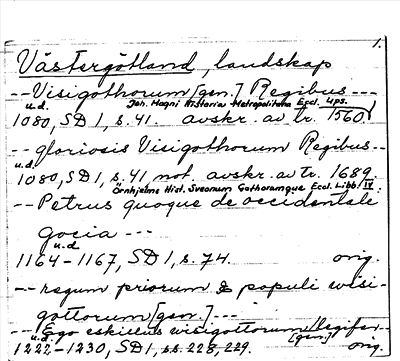 1.
Västergötland, landskap
-- Visigothorum [gen.] Regibus ---
u.d. Joh. Magni Historia Metropolitana Eccl. Ups.
1080, SD 1, s. 41. avskr. av tr. 1560.
-- gloriosis Visigothorum Regibus --
u.d.
1080, SD 1, s. 41 not. avskr. av tr. 1689.
Örnhjelms Hist. Sveonum Gothorumque Eccl. Libb. IV:
-- Petrus quoque de occidentale
gocia ---
u.d
1164-1167, SD 1, s. 74. orig.
-- regum priorum & populi wisi-
gottorum [gen.] ---
-- Ego eskillus wisigottorum legifer --
u.d. [gen.]
1222-1230, SD 1, ss. 228, 229. orig.